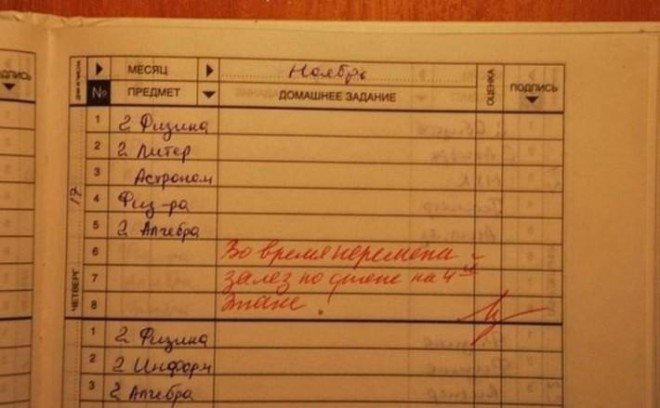 МЕСЯЦ Ноябрь ОЦЕНКА ПОДПИСЬ
№ ПРЕДМЕТ ДОМАШНЕЕ ЗАДАНИЕ
17
ЧЕТВЕРГ
1 2 Физика
2 2 Литер
3 Астроном
4 Физ-ра
5 2 Алгебра
6 Во время перемены
7 залез по стене на 4ый
8 этаж!
1 2 Физика
2 2 Информ
3 2 Алгебра